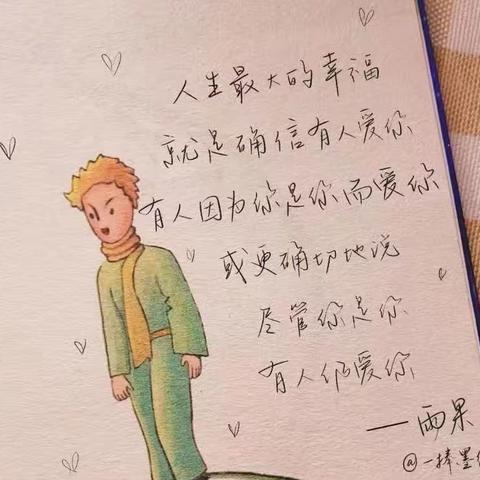 人生最大的幸福
就是确信有人爱你
有人因为你是你而爱你
或更确切地说
尽管你是你
有人仍爱你
——雨果
@一捧墨